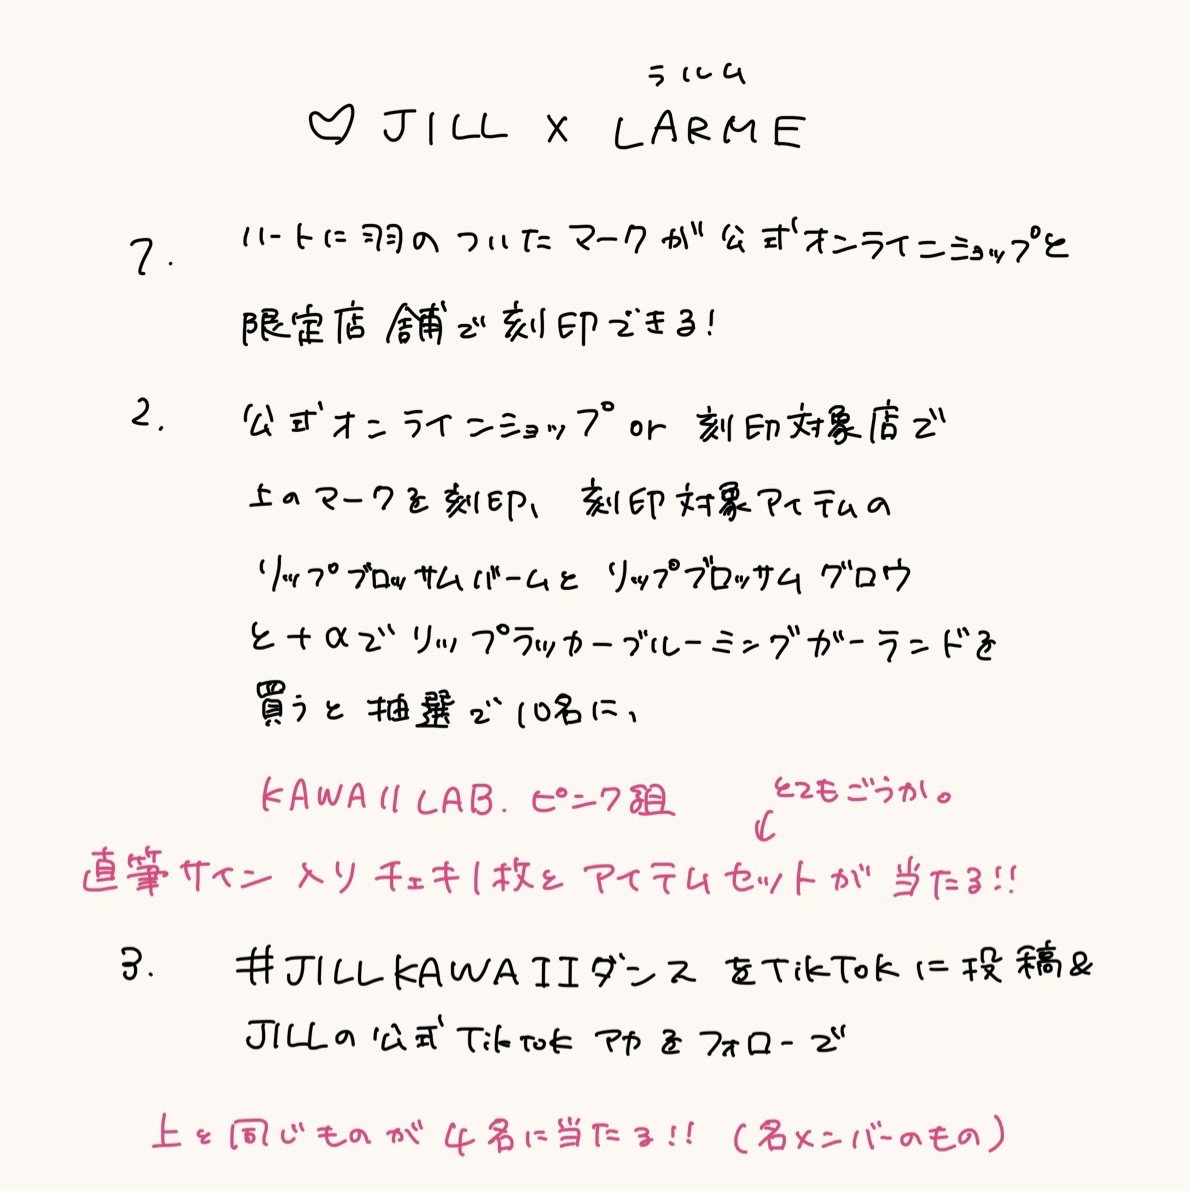 ラルム
♡ JILL × LARME
1. ハートに羽のついたマークが公式オンラインショップと
限定店舗で刻印できる!
2. 公式オンラインショップ or 刻印対象店で
上のマークを刻印、刻印対象アイテムの
リップブロッサムバームと リップブロッサム グロウ
と+αで リップラッカーブルーミングガーランドを
買うと 抽選で 10名に、
KAWAII LAB. ピンク組
とてもごうか。
直筆サイン入りチェキ1枚と アイテムセットが 当たる!!
3. #JILLKAWAIIダンス をTikTokに投稿&
JILLの公式TikTok アカをフォローで
上と同じものが 4名に当たる!! (名メンバーのもの)